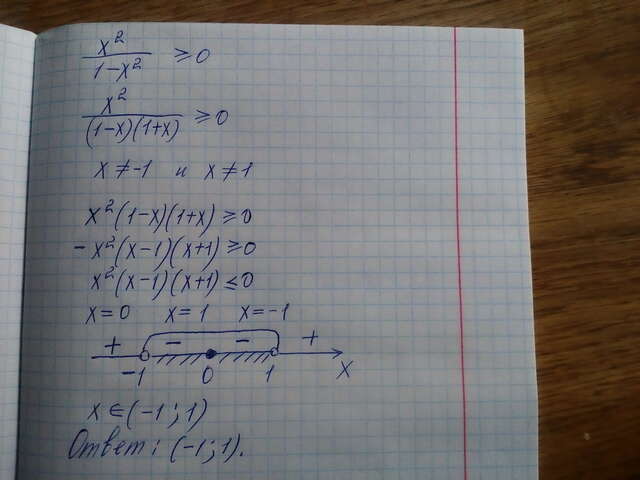 x²/(1-x²) ≥ 0
x²/((1-x)(1+x)) ≥ 0
x ≠ -1 и x ≠ 1
x²(1-x)(1+x) ≥ 0
-x²(x-1)(x+1) ≥ 0
x²(x-1)(x+1) ≤ 0
x=0 x=1 x=-1
+ - - +
-1 0 1 x
x ∈ (-1; 1)
Ответ: (-1; 1).